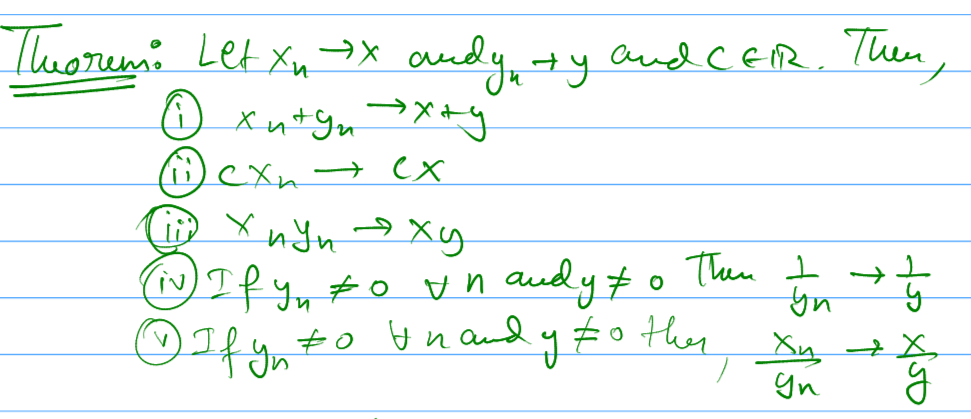 Theorem: Let xₙ → x and yₙ → y and C ∈ ℝ. Then,
(i) xₙ + yₙ → x + y
(ii) cxₙ → cx
(iii) xₙyₙ → xy
(iv) If yₙ ≠ 0 ∀ n and y ≠ 0 Then 1/yₙ → 1/y
(v) If yₙ ≠ 0 ∀ n and y ≠ 0 then, xₙ/yₙ → x/y